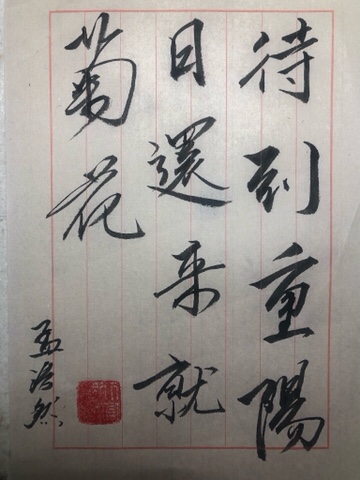 待到重陽
日還来就
菊花
孟浩然